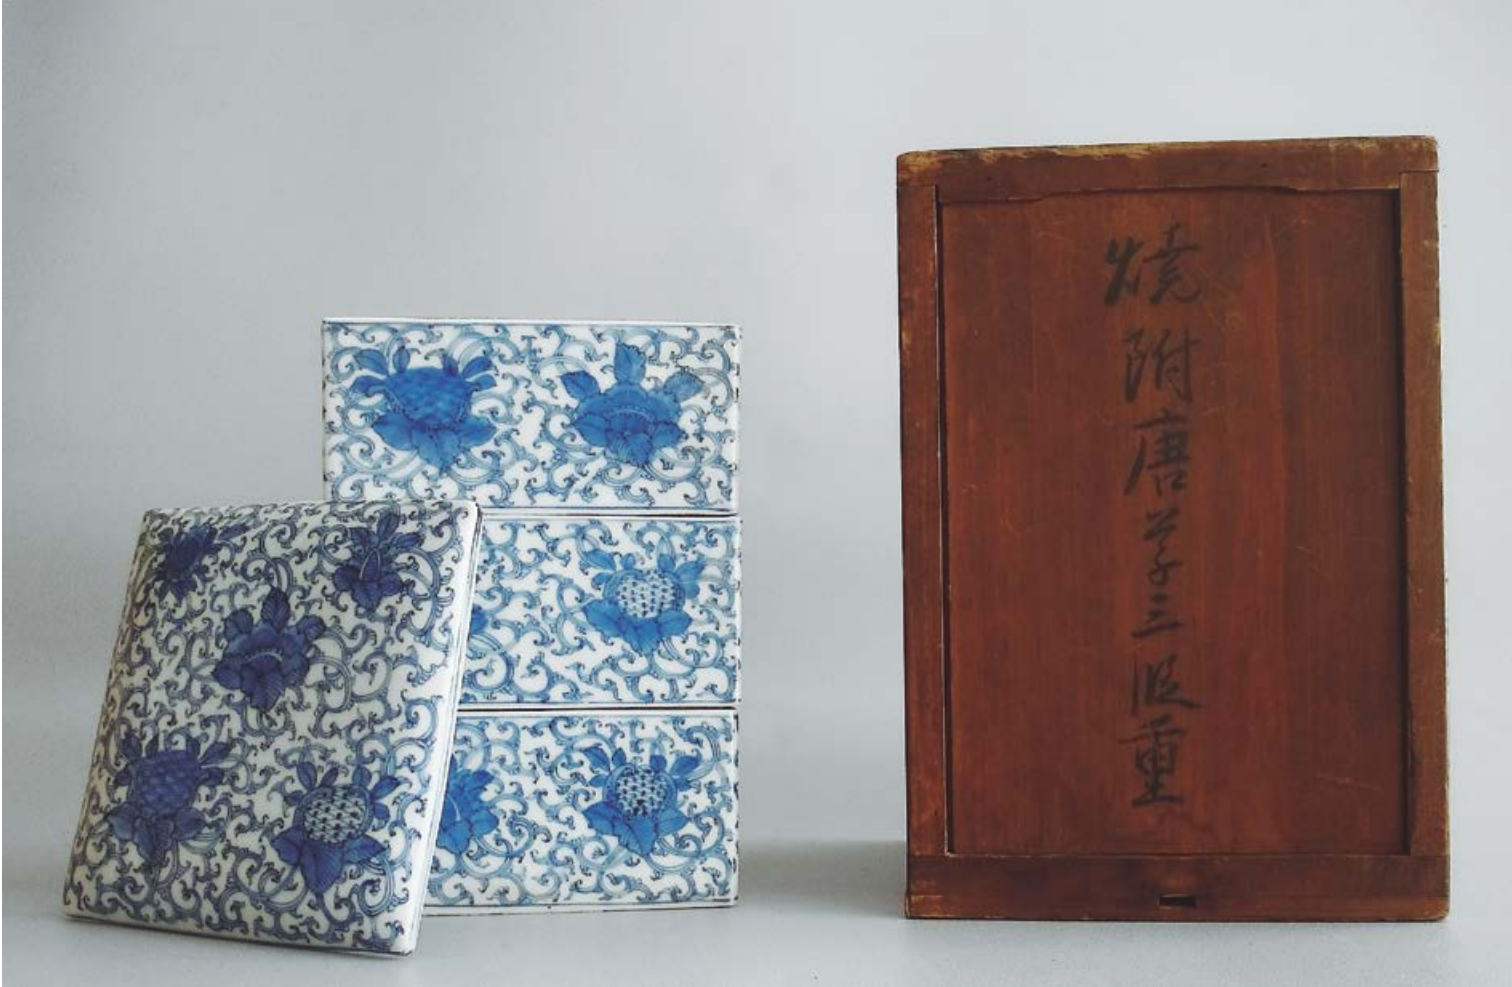 燒附唐草三段重